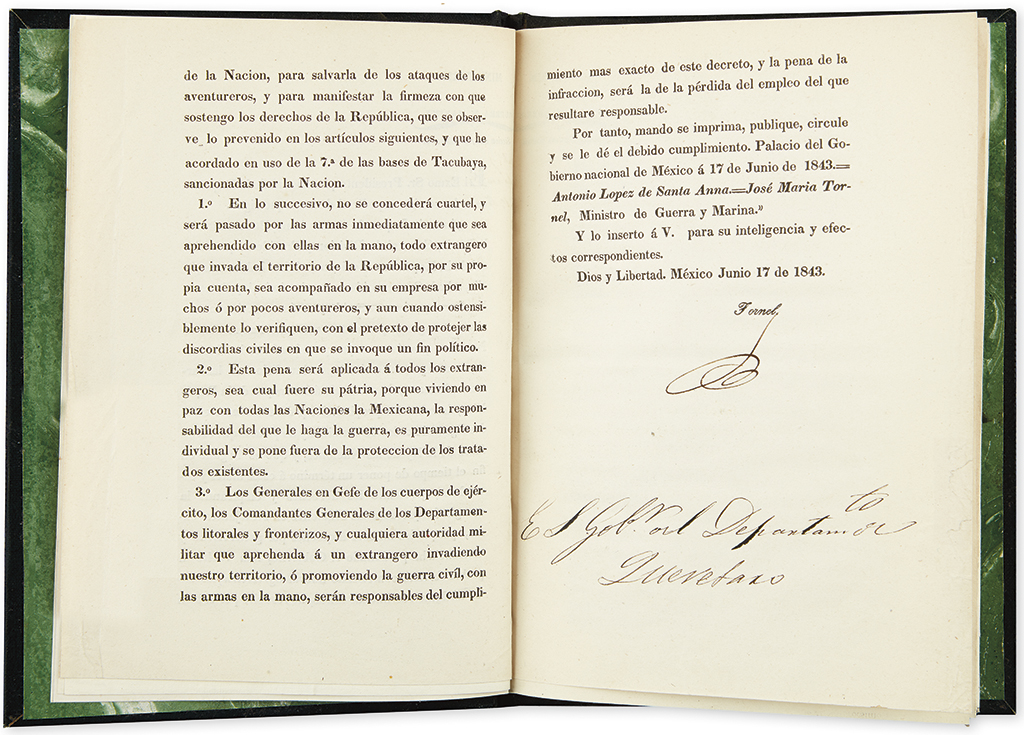 de la Nacion, para salvarla de los ataques de los
aventureros, y para manifestar la firmeza con que
sostengo los derechos de la República, que se obser-
ve lo prevenido en los artículos siguientes, y que he
acordado en uso de la 7.ª de las bases de Tacubaya,
sancionadas por la Nacion.
1.º En lo succesivo, no se concederá cuartel, y
será pasado por las armas inmediatamente que sea
aprehendido con ellas en la mano, todo extrangero
que invada el territorio de la República, por su pro-
pia cuenta, sea acompañado en su empresa por mu-
chos ó por pocos aventureros, y aun cuando ostensi-
blemente lo verifiquen, con el pretexto de protejer las
discordias civiles en que se invoque un fin político.
2.º Esta pena será aplicada á todos los extran-
geros, sea cual fuere su pátria, porque viviendo en
paz con todas las Naciones la Mexicana, la respon-
sabilidad del que le haga la guerra, es puramente in-
dividual y se pone fuera de la proteccion de los trata-
dos existentes.
3.º Los Generales en Gefe de los cuerpos de ejér-
cito, los Comandantes Generales de los Departamen-
tos litorales y fronterizos, y cualquiera autoridad mi-
litar que aprehenda á un extrangero invadiendo
nuestro territorio, ó promoviendo la guerra civíl, con
las armas en la mano, serán responsables del cumpli-
miento mas exacto de este decreto, y la pena de la
infraccion, será la de la pérdida del empleo del que
resultare responsable.
Por tanto, mando se imprima, publique, circule
y se le dé el debido cumplimiento. Palacio del Go-
bierno nacional de México á 17 de Junio de 1843.=
Antonio Lopez de Santa Anna.=José Maria Tor-
nel, Ministro de Guerra y Marina.”
Y lo inserto á V. para su inteligencia y efec-
tos correspondientes.
Dios y Libertad. México Junio 17 de 1843.
Tornel
E S Gobr. del Departamto de
Queretaro